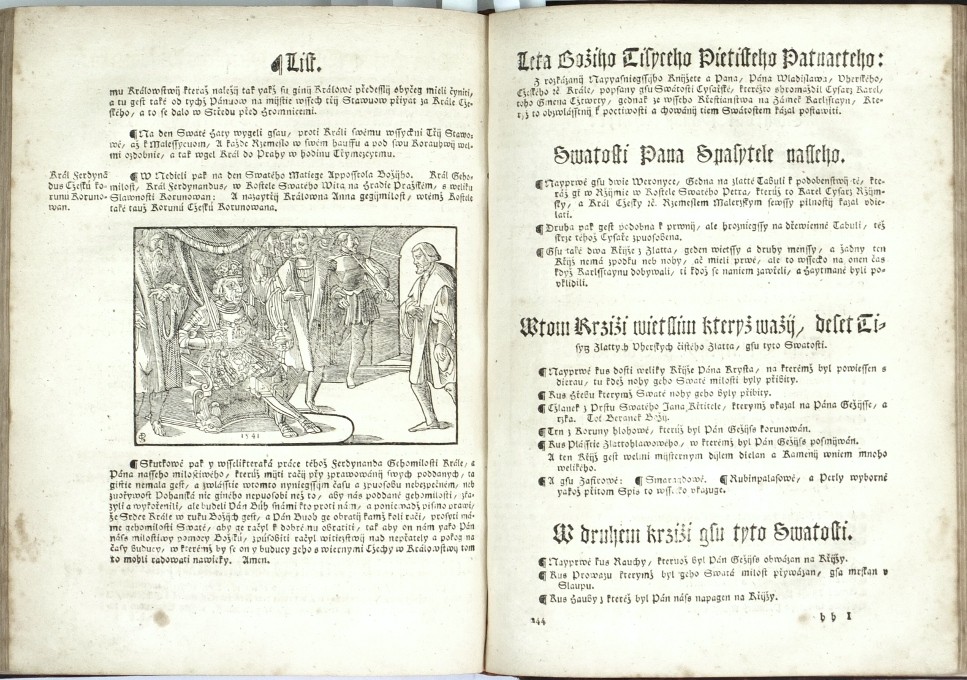 ¶ List.
mu Královostwij kteráž náležij tak yakž su ginij Králowé předessslij obyčeg mieli čyniti/
a tu gest také od tychž Pánuow na mijstie wssech třij Stawuow přiyat za Krále Cze-
ského/ a to se dalo w Středu před Hromnicemi.
¶ Na den Swaté Háty wygeli gsau/ proti Králi swému wssyckni Třij Stawo-
wé/ až k Malessycuom/ A každé Rzemeslo w swém hauffu a pod swu Korauhwij wel-
mi ozdobnie/ a tak wgel Král do Prahy w hodinu Třymezcytmu.
Král Ferdyná
dus Czeskú ko-
runú Koruno-
wan.
¶ W Nedieli pak na den Swatého Matiege Appostola Božijho. Král Geho-
milost/ Král Ferdynandus/ w Kostele Swatého Wita na Hradie Pražském/ s weliku
Slawnosti Korunowan: A nazaytřij Králowna Anna gegijmilost/ wtémž Kostele
také tauž Korunú Czeskú Korunowana.
1541
¶ Skutkowé pak y wsselikteraká práce téhož Ferdynanda Gehomilosti Krále/ a
Pána nasseho milostiwého/ kterúž mijti račij přy zprawowánij swych poddanych/ ta
gistie nemala gest/ a zwlásstie wtomto nyniegssym času a zpuosobu nebezpečném/ neb
zuořywost Pohanská nic giného nepuosobí než to/ aby nás poddané gehomilosti/ zka-
zyli a wykořenili/ ale budeli Pán Bůh snámi kto proti nám/ a poniewadž pijsmo prawi/
že Srdce Krále w ruku Božijch gest/ a Pán Buoh ge obratij kamž koli račí/ prosyti má-
me gehomilosti Swaté/ aby ge račyl k dobrému obratiti/ tak aby on nám yako Pán
náss milostiwy pomocy Božskú/ zpuosobiti račyl witiezstwij nad nepřátely a pokog na
časy budúcy/ w kterémž by se on y budúcy geho s wiernymi Czechy w Králowstwij tom
to mohli radowati nawieky. Amen.
Leta Božiho Tisyceho Pietisteho Patnacteho:
Z rozkázanij Nayyasniegssyjho Knijžete a Pana/ Pána Wladislawa/ Vherského/
Czeského &c. Krále/ popsany gsu Swatosti Cysařské/ kteréžto shromaždil Cysarz Karel/
toho Gmena Cztwrty/ gednak ze wsseho Křestianstwa na Zámek Karlsstayn/ Kte-
réžto obzwlásstnij k poctiwosti a chowánij tiem Swátostem kázal postawiti.
Swatosti Pana Spasytele nasseho.
¶ Nayprwé gsu dwie Weronyce/ Gedna na zlatté Tabuli k podobenstwij té/ kte-
ráž gi w Rzijmie w Kostele Swatého Petra/ kterúž to Karel Cysarz Rzijm-
sky/ a Král Czesky &c. Rzemeslem Malerzskym sewssy pilnostij kázal vdie-
lati.
¶ Druha pak gest podobna k prwnij/ ale hrozniegssy na dřewienné Tabuli/ též
skrze téhož Cysaře zpuosobena.
¶ Gsu také dwa Křijže z Zlatta/ geden wietssy a druhy menssy/ a žadny ten
Křijž nemá zpodku neb nohy/ ač mieli prwé/ ale to wssecko na onen čas
když Karlsstaynu dobywali/ ti kdož se naniem zawřeli/ a Haytmané byli po-
vklidili.
Wtom Krziži wietssim kteryž wažij/ deset Ti-
sycz Zlattych Vherskych čistého Zlatta/ gsu tyto Swatosti.
¶ Nayprwé kus dosti weliky Křijže Pána Krysta/ na kterémž byl powiessen s
dierau/ tu kdež nohy geho Swaté milosti byly přibity.
¶ Kus Hřebu kterymž Swaté nohy geho byly přibity.
¶ Cžlanek z Prstu Swatého Jana Křtitele/ kterymž vkazal na Pána Gežijsse/ a
rzka. Tot Beranek Božij.
¶ Trn z Koruny hlohowé/ kterúž byl Pán Gežijs korunowán.
¶ Kus Plásstie Zlattohlawowého/ w kterémž byl Pán Gežijss posmijwán.
A ten Křijž gest welmi mijsternym dijlem dielan a Kamenij wniem mnoho
welikého.
¶ A gsu Zafirowé: ¶ Smaragdowé. ¶ Rubinpalasowé/ a Perly wyborné
yakož přitom Spis to wssecko vkazuge.
W druhem krziži gsu tyto Swatosti.
¶ Nayprwé kus Rauchy/ kterúož byl Pán Gežijs obwázan na Křijžy.
¶ Kus Prowazu kterymž byl geho Swatá milost přywázan/ gsa mrskan v
Slaupu.
¶ Kus Hauby z kteréž byl Pán náss napagen na Křijžy.
244
h h I